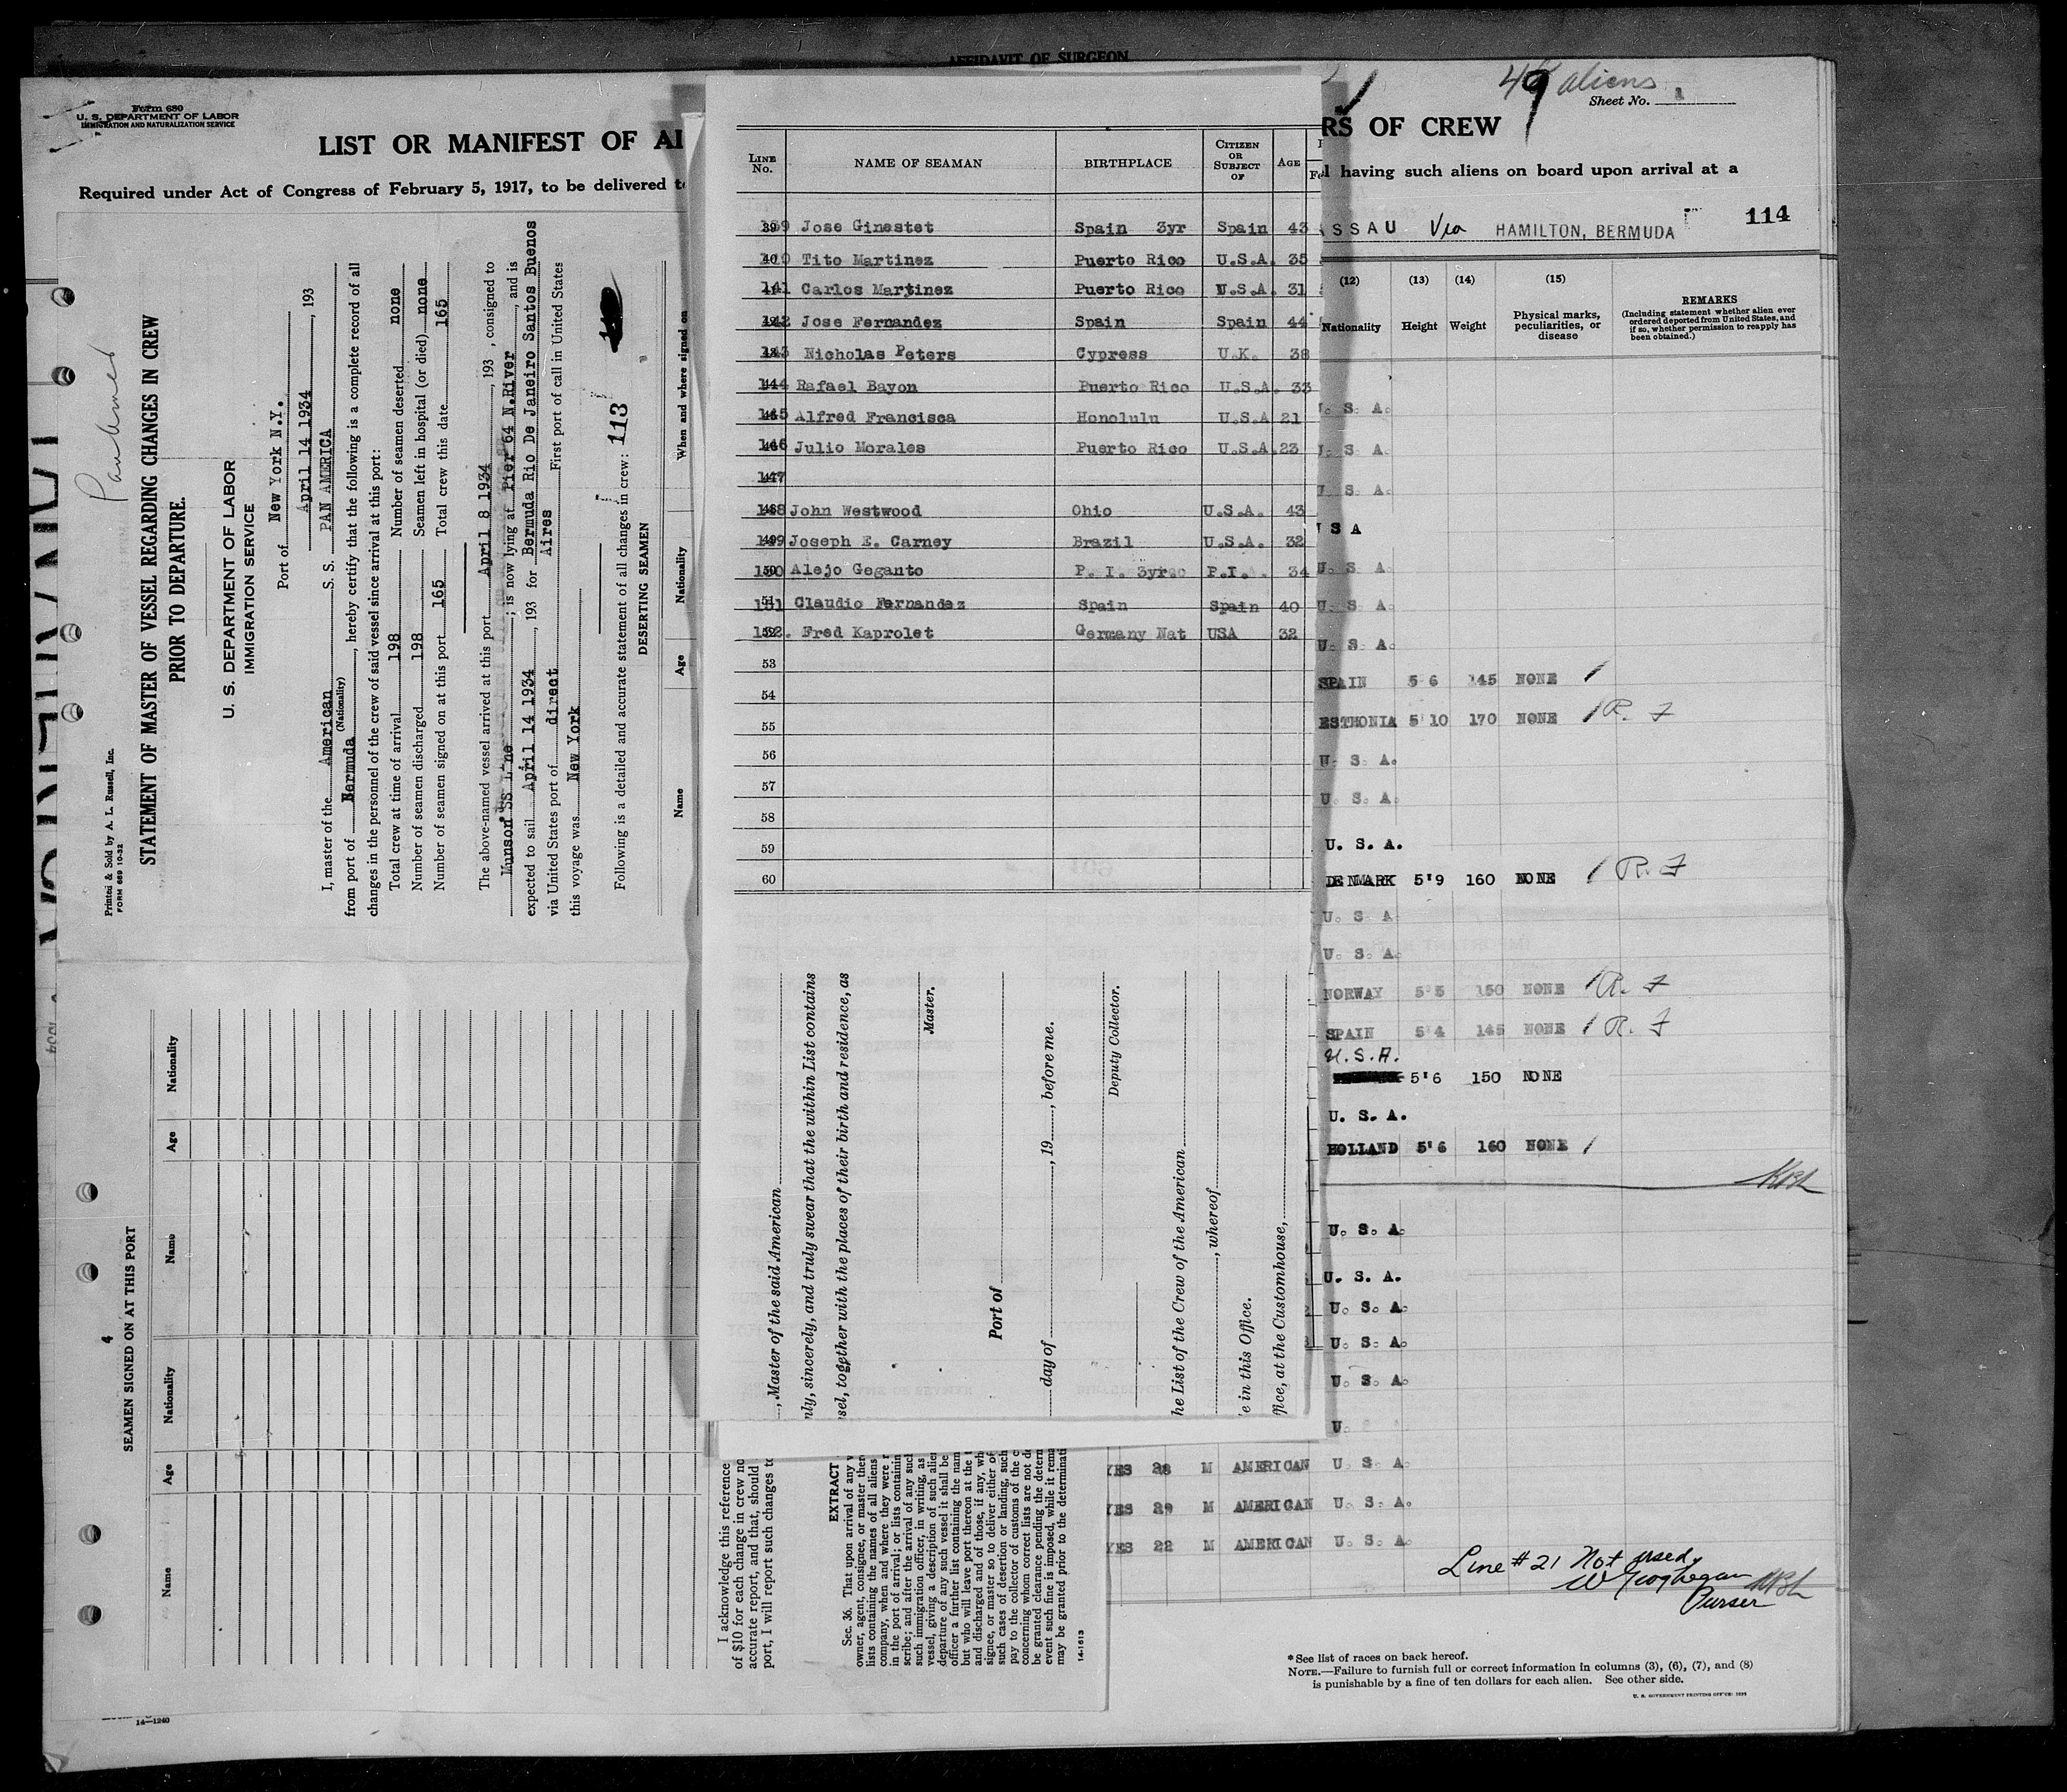 AFFIDAVIT OF SURGEON
Form 680
U. S. DEPARTMENT OF LABOR
IMMIGRATION AND NATURALIZATION SERVICE
LIST OR MANIFEST OF AL
Required under Act of Congress of February 5, 1917, to be delivered t
49 aliens
Sheet No.
RS OF CREW
having such aliens on board upon arrival at a
SSAU Via HAMILTON, BERMUDA 114
Printed & Sold by A. L. Russell, Inc.
FORM 689 10-32
STATEMENT OF MASTER OF VESSEL REGARDING CHANGES IN CREW
PRIOR TO DEPARTURE.
U. S. DEPARTMENT OF LABOR
IMMIGRATION SERVICE
Port of New York N.Y.
April 14 1934, 193
I, master of the American S. S. PAN AMERICA
(Nationality)
from port of Bermuda, hereby certify that the following is a complete record of all
changes in the personnel of the crew of said vessel since arrival at this port:
Total crew at time of arrival 198 Number of seamen deserted none
Number of seamen discharged 198 Seamen left in hospital (or died) none
Number of seamen signed on at this port 165 Total crew this date 165
The above-named vessel arrived at this port April 8 1934, 193 , consigned to
Munson SS Line ; is now lying at Pier 64 N.River, and is
expected to sail April 14 1934, 193 for Bermuda Rio De Janeiro Santos Buenos
Aires
via United States port of direct First port of call in United States
this voyage was New York
Following is a detailed and accurate statement of all changes in crew: 113
DESERTING SEAMEN
Name Age Nationality When and where signed on
4
SEAMEN SIGNED ON AT THIS PORT
Name Age Nationality Name Age Nationality
14—1240
LINE No. NAME OF SEAMAN BIRTHPLACE CITIZEN OR SUBJECT OF AGE
139 Jose Ginestet Spain 3yr Spain 43
140 Tito Martinez Puerto Rico U.S.A. 35
141 Carlos Martinez Puerto Rico U.S.A. 31
142 Jose Fernandez Spain Spain 44
143 Nicholas Peters Cypress U.K. 38
144 Rafael Bayon Puerto Rico U.S.A. 33
145 Alfred Francisca Honolulu U.S.A 21
146 Julio Morales Puerto Rico U.S.A. 23
147
148 John Westwood Ohio U.S.A. 43
149 Joseph E. Carney Brazil U.S.A. 32
150 Alejo Geganto P. I. 3yr. P.I. 34
151 Claudio Fernandez Spain Spain 40
152. Fred Kaprolet Germany Nat USA 32
53
54
55
56
57
58
59
60
, Master of the said American
nly, sincerely, and truly swear that the within List contains
sel, together with the places of their birth and residence, as
Master.
Port of
day of , 19 , before me.
Deputy Collector.
he List of the Crew of the American
, whereof
e in this Office.
ffice, at the Customhouse,
(12) (13) (14) (15)
Nationality Height Weight Physical marks, peculiarities, or disease
REMARKS
(Including statement whether alien ever
ordered deported from United States, and
if so, whether permission to reapply has
been obtained.)
U. S. A.
U. S. A.
U. S. A.
U S A
U. S. A.
U. S. A.
U. S. A.
SPAIN 5 6 145 NONE
ESTHONIA 5'10 170 NONE R. F
U. S. A.
U. S. A.
U. S. A.
DENMARK 5'9 160 NONE R. F
U. S A
U. S A.
NORWAY 5'5 150 NONE R. F
SPAIN 5'4 145 NONE R. F
U.S.A.
5'6 150 NONE
U. S. A.
HOLLAND 5'6 160 NONE
U. S. A.
U. S. A.
U. S. A.
U. S. A.
U. S. A.
U.
YES 28 M AMERICAN U. S. A.
YES 29 M AMERICAN U. S. A.
YES 22 M AMERICAN U. S. A.
Line # 21 Not used.
W Geoghegan
Purser
I acknowledge this reference
of $10 for each change in crew no
accurate report, and that, should
port, I will report such changes to
EXTRACT
Sec. 36. That upon arrival of any v
owner, agent, consignee, or master ther
lists containing the names of all aliens
company, when and where they were r
in the port of arrival; or lists containin
scribe; and after the arrival of any such
such immigration officer, in writing, as
vessel, giving a description of such alien
departure of any such vessel it shall be
officer a further list containing the nam
but who will leave port thereon at the
and discharged and of those, if any, wh
signee, or master so to deliver either of
such cases of desertion or landing, such
pay to the collector of customs of the c
concerning whom correct lists are not de
be granted clearance pending the determ
event such fine is imposed, while it rema
may be granted prior to the determinati
14-1613
*See list of races on back hereof.
NOTE.—Failure to furnish full or correct information in columns (3), (6), (7), and (8)
is punishable by a fine of ten dollars for each alien. See other side.
U. S. GOVERNMENT PRINTING OFFICE: 1933